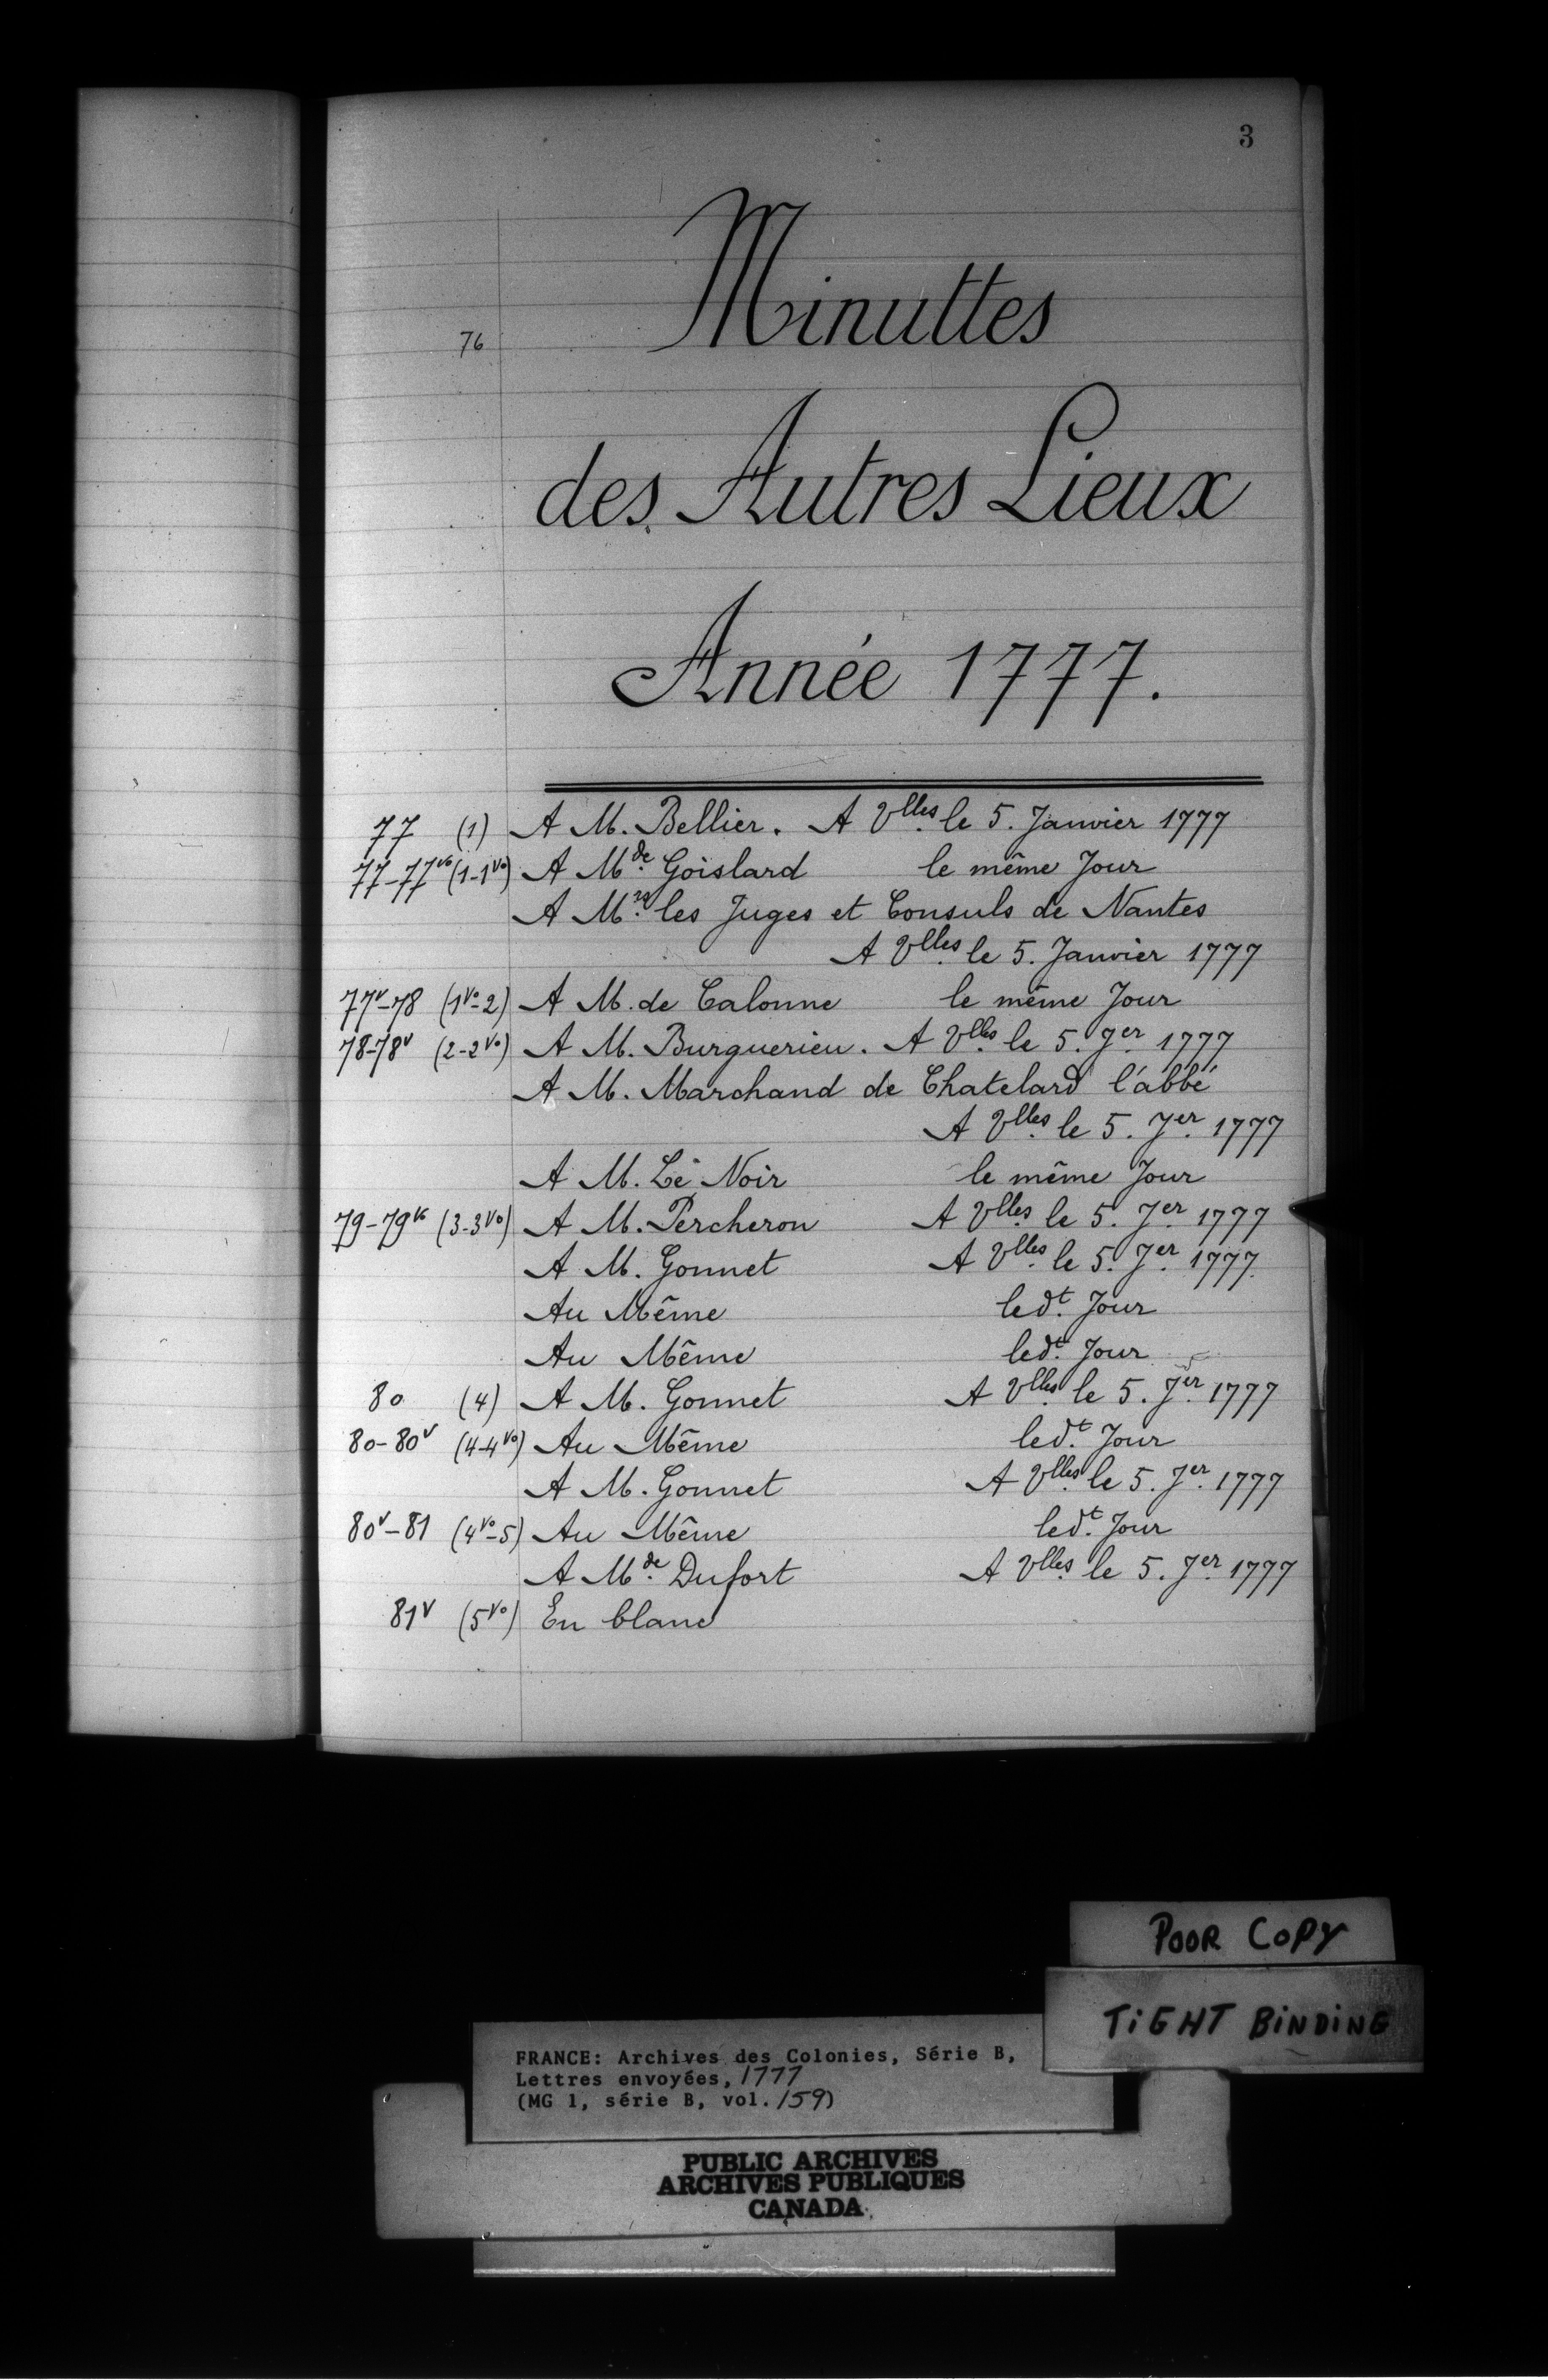 3
76 Minuttes
des Autres Lieux
Année 1777.
77 (1) A M. Bellier. A Vlles. le 5. Janvier 1777
77-77vo (1-1vo) A Mde. Goislard le même Jour
A Mrs. les Juges et Consuls de Nantes
A Vlles. le 5. Janvier 1777
77v-78 (1vo-2) A M. de Calonne le même Jour
78-78v (2-2vo) A M. Burguerieu. A Vlles. le 5. Jer. 1777
A M. Marchand de Chatelard l'abbé
A Vlles. le 5. Jer. 1777
A M. Le Noir le même Jour
79-79vo (3-3vo) A M. Percheron A Vlles. le 5. Jer. 1777
A M. Gonnet A Vlles. le 5. Jer. 1777.
Au Même ledt. Jour
Au Même ledt. Jour
80 (4) A M. Gonnet A Vlles. le 5. Jer. 1777
80-80v (4-4vo) Au Même ledt. Jour
A M. Gonnet A Vlles. le 5. Jer. 1777
80v-81 (4vo-5) Au Même ledt. Jour
A Mde. Dufort A Vlles. le 5. Jer. 1777
81v (5vo) En blanc
POOR COPY
TiGHT BiNDiNG
FRANCE: Archives des Colonies, Série B,
Lettres envoyées, 1777
(MG 1, série B, vol. 159)
PUBLIC ARCHIVES
ARCHIVES PUBLIQUES
CANADA